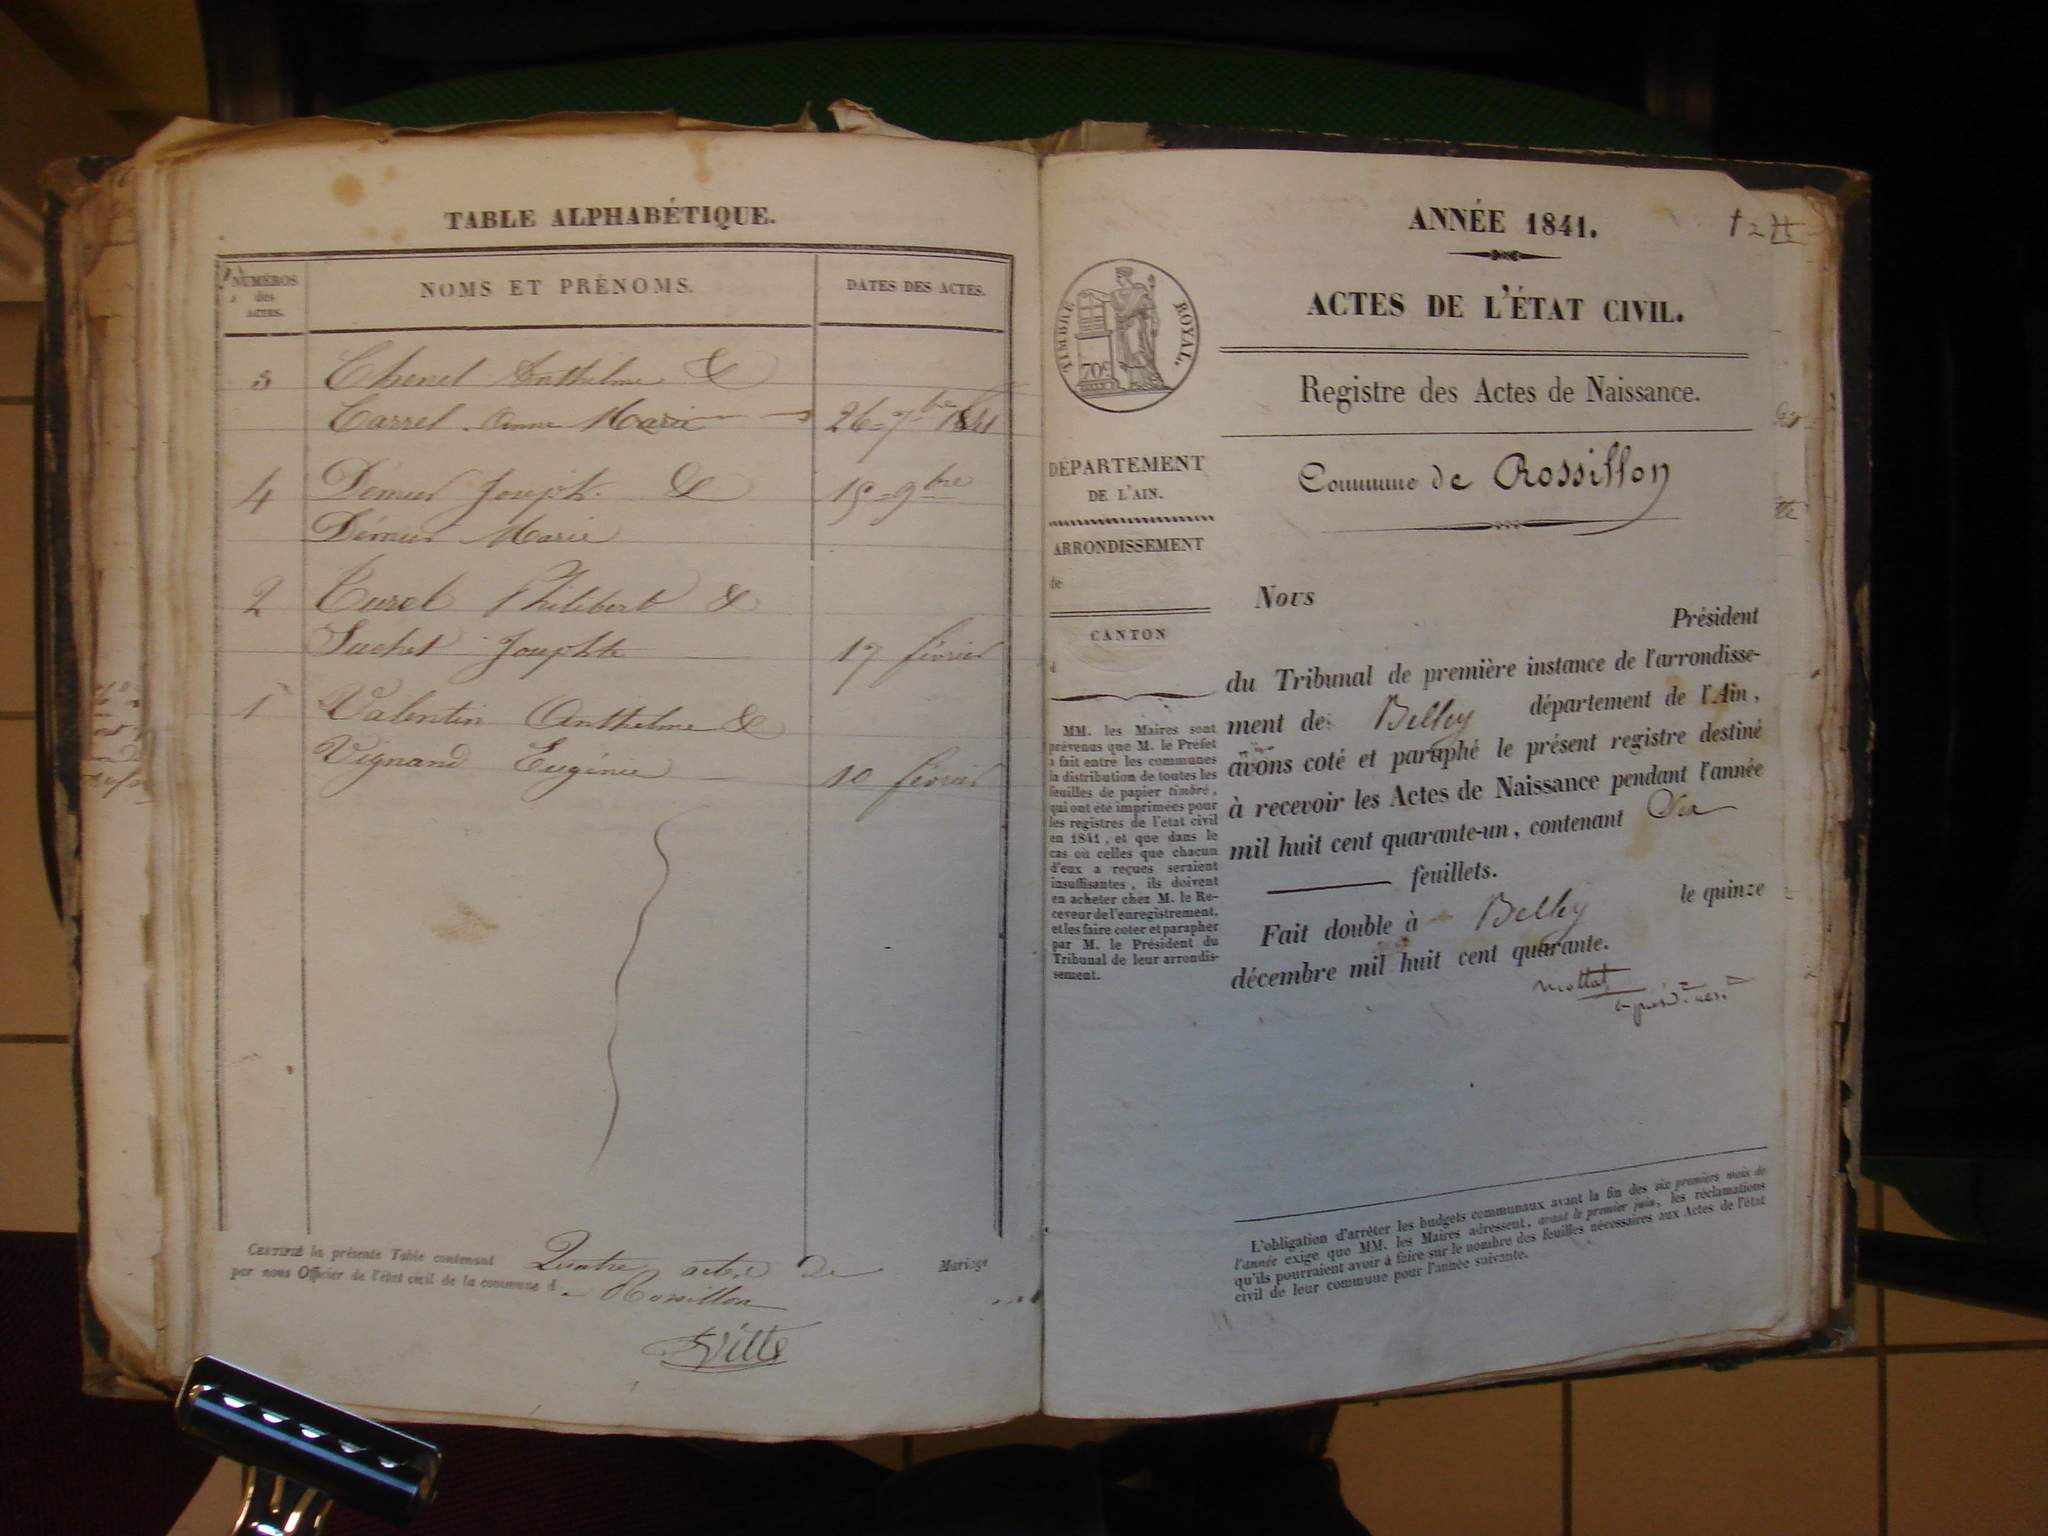 TABLE ALPHABÉTIQUE.
NUMÉROS
des
ACTES.
NOMS ET PRÉNOMS.
DATES DES ACTES.
3 Chenel Anthelme &
Carrel Anne Marie 26 = 7bre 1841
4 Démeur Joseph & 15 = 9bre
Démeur Marie
2 Curel Philibert &
Suchet Josephte 17 février
1 Valentin Anthelme &
Vignand Eugénie 10 février
CERTIFIÉ la présente Table contenant Quatre actes de Mariage
par nous Officier de l'état civil de la commune d Rossillon
Vitte
ANNÉE 1841.
TIMBRE ROYAL.
70c
ACTES DE L'ÉTAT CIVIL.
Registre des Actes de Naissance.
Commune de Rossillon
DÉPARTEMENT
DE L'AIN.
ARRONDISSEMENT
de
CANTON
d
MM. les Maires sont
prévenus que M. le Préfet
a fait entre les communes
la distribution de toutes les
feuilles de papier timbré,
qui ont été imprimées pour
les registres de l'état civil
en 1841, et que dans le
cas où celles que chacun
d'eux a reçues seraient
insuffisantes, ils doivent
en acheter chez M. le Re-
ceveur de l'enregistrement,
et les faire coter et parapher
par M. le Président du
Tribunal de leur arrondis-
sement.
Nous
Président
du Tribunal de première instance de l'arrondisse-
ment de Belley département de l'Ain,
avons coté et paraphé le présent registre destiné
à recevoir les Actes de Naissance pendant l'année
mil huit cent quarante-un, contenant Six
feuillets.
Fait double à Belley le quinze
décembre mil huit cent quarante.
L'obligation d'arrêter les budgets communaux avant la fin des six premiers mois de
l'année exige que MM. les Maires adressent, avant le premier juin, les réclamations
qu'ils pourraient avoir à faire sur le nombre des feuilles nécessaires aux Actes de l'état
civil de leur commune pour l'année suivante.